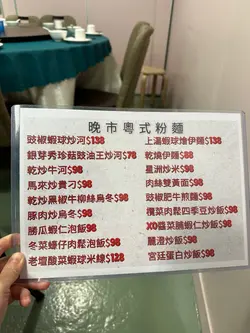 晚市粵式粉麵
豉椒蝦球炒河$138
銀芽秀珍菇豉油王炒河$78
乾炒牛河$98
馬來炒貴刁$98
乾炒黑椒牛柳絲烏冬$98
豚肉炒烏冬$98
勝瓜蝦仁泡飯$98
冬菜蠔仔肉鬆泡飯$98
老壇酸菜蝦球米線$128
上湯蝦球燴伊麵$138
乾燒伊麵$88
星洲炒米$98
肉絲雙黃面$98
豉椒肥牛煎麵$98
欖菜肉鬆四季豆炒飯$98
XO醬菜脯蝦仁炒飯$98
麗澄炒飯$98
宮廷蛋白炒飯$98